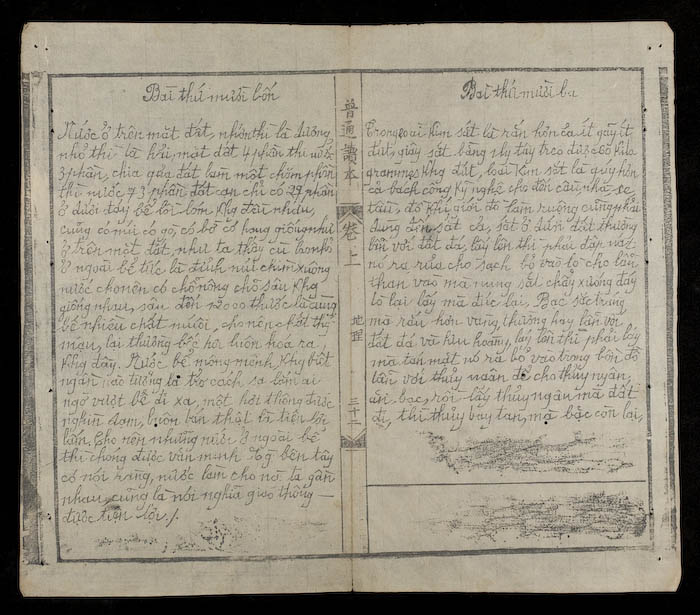 Bài thứ mười ba
Trong loài Kim sắt là rắn hơn cả, ít gãy ít
đứt, giây sắt bằng 1 ly tây treo được 60 kilo
grammes không đứt, loài Kim sắt là quý hơn
cả bách công kỹ nghệ cho đến cầu nhà, xe
tầu, đồ khí giới đồ làm ruộng cũng phải
dùng đến sắt cả, sắt ở dưới đất thường
lẫn với đất đá, lấy lên thì phải đập nát
nó ra rửa cho sạch bỏ vào lò cho lẫn
than vào mà nung sắt chẩy xuống đáy
lò lại lấy mà đúc lại. Bạc sắc trắng
mà rắn hơn vàng, thường hay lẫn với
đất đá và lưu hoàng, lấy lên thì phải lấy
ma tan mật nó ra bỏ vào trong bồn đồ
lẫn với thủy ngân để cho thủy ngân
ăn bạc, rồi lấy thủy ngân mà đốt
đi, thì thủy bay tan, mà bạc còn lại,
普通讀本
卷上
地
三十二
Bài thứ mười bốn
Nước ở trên mặt đất, nhớn thì là dương
nhỏ thì là hải, mặt đất 4 phần thì nước
3 phần, chia quả đất làm một trăm phần
thì nước 73 phần đất còn chỉ có 27 phần
ở dưới đáy bể lồi lõm, Khg đều nhau,
cũng có núi có gò, có bờ có hang giống như
ở trên mặt đất, như ta thấy cù lao nhỏ
ở ngoài bể tức là đỉnh núi chìm xuống
nước cho nên có chỗ nông chỗ sâu Khg
giống nhau, sâu đến 12000 thước là cùng
bể nhiều chất muối, cho nên chất thì
mặn, lại thường bốc hơi luôn hóa ra
Khg đầy. Nước bể mông mênh, Khg biết
ngần nào tưởng là trở cách xa lắm ai
ngờ vượt bể đi xa, một hơi thông được
nghìn dặm, buôn bán thật là tiện lợi
lắm. Cho nên những nước ở ngoài bể
thì chóng được văn minh bên tây
có nói rằng, nước làm cho nó ta gần
nhau cũng là nói nghĩa giao thông
được tiện lợi /.